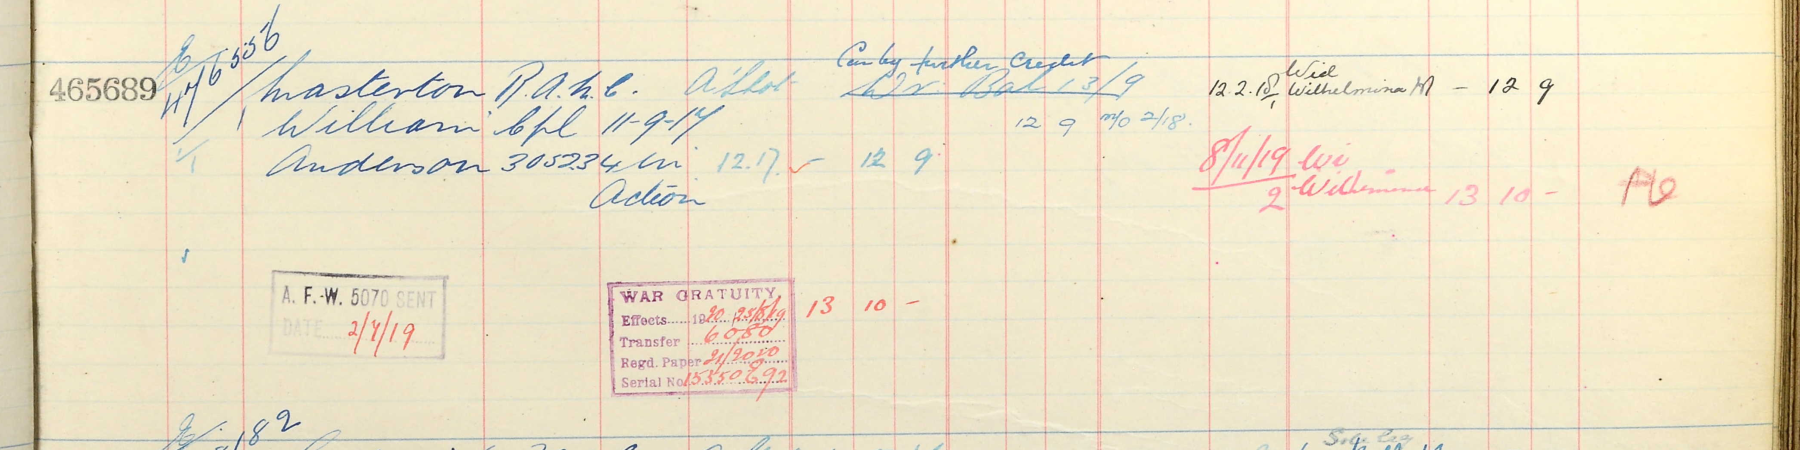 465689
E/ 476556/1
Masterton R.A.M.C. A'Shot
William Cpl 11-9-17
Anderson 305234 in 12.17. 12 9
Action
Can by further Credit
Dr Bal 13/9
12 9 m/o 2/18.
12.2.18/1 Wid Wilhelmina M - 12 9
8/11/19 Wi
2 Wilhelmina 13 10 -
A. F.-W. 5070 SENT
DATE 2/7/19
WAR GRATUITY 13 10 -
Effects 1920
Transfer 6080
Regd. Paper
Serial No
182